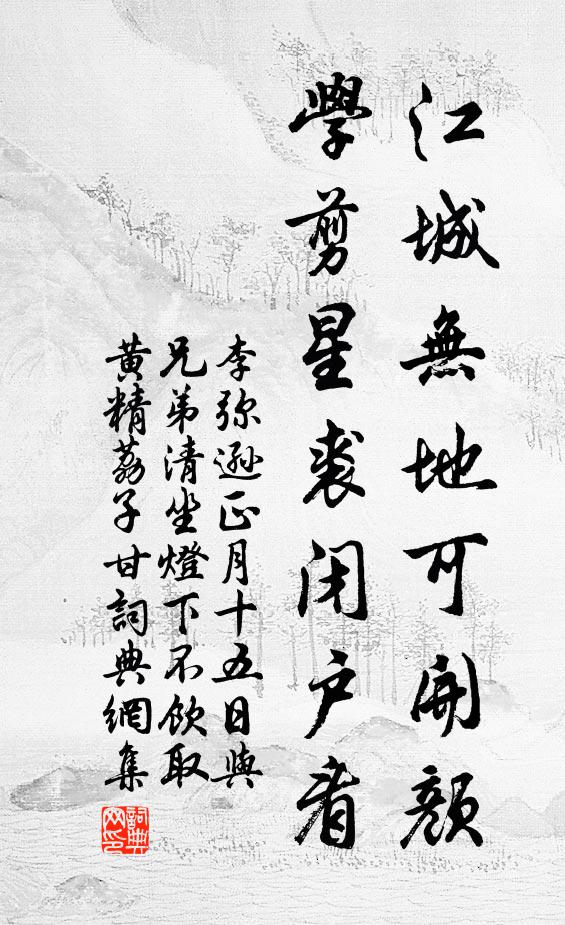 江城無地可開顏
學剪星裘閉户看
李弥遜正月十五日與
兄弟清坐燈下不飲取
黄精荔子甘詞典網集
詞典
网印